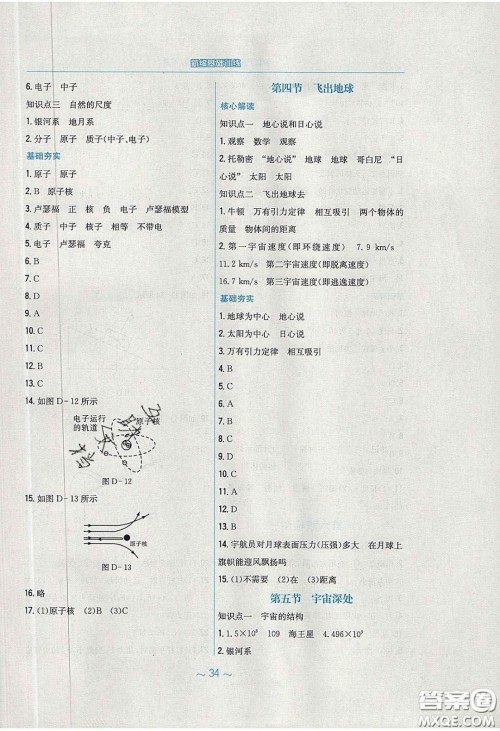 新编基础训练
6. 电子 中子
知识点三 自然的尺度
1. 银河系 地月系
2. 分子 原子 质子(中子、电子)
基础夯实
1. 原子 原子
2. B 原子核
3. 卢瑟福 正 核 负 电子 卢瑟福模型
4. 质子 中子 核子 相等 不带电
5. 电子 卢瑟福 夸克
6. B
7. D
8. C
9. A
10. C
11. B
12. D
13. C
14. 如图 D-12 所示
电子运行
的轨道
原子核
图 D-12
15. 如图 D-13 所示
原子核
图 D-13
16. 略
17. (1)原子核 (2)B (3)C
第四节 飞出地球
核心解读
知识点一 地心说和日心说
1. 观察 数学 观察
2. 托勒密 “地心说” 地球 地球 哥白尼 “日
心说” 太阳 太阳
知识点二 飞出地球去
1. 牛顿 万有引力定律 相互吸引 两个物体的
质量 物体间的距离
2. 第一宇宙速度(即环绕速度) 7.9 km/s
11.2 km/s 第二宇宙速度(即脱离速度)
16.7 km/s 第三宇宙速度(即逃逸速度)
基础夯实
1. 地球为中心 地心说
2. 太阳为中心 日心说
3. 万有引力定律 相互吸引
4. B
5. C
6. C
7. A
8. B
9. D
10. C
11. A
12. D
13. B
14. 宇航员对月球表面压力(压强)多大 在月球上
旗帜能迎风飘扬吗
15. (1)不需要 (2)在 (3)距离
第五节 宇宙深处
知识点一 宇宙的结构
1. 1.5×10⁸ 109 海王星 4.496×10⁹
2. 银河系
～ 34 ～
答案圈
MXQE.COM